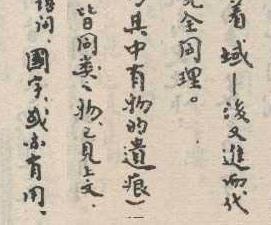 着域—後又進而代
完全同理。
其中有物的遺痕）
皆同类之物，已見上文，
語詞，國字，或亦有用，